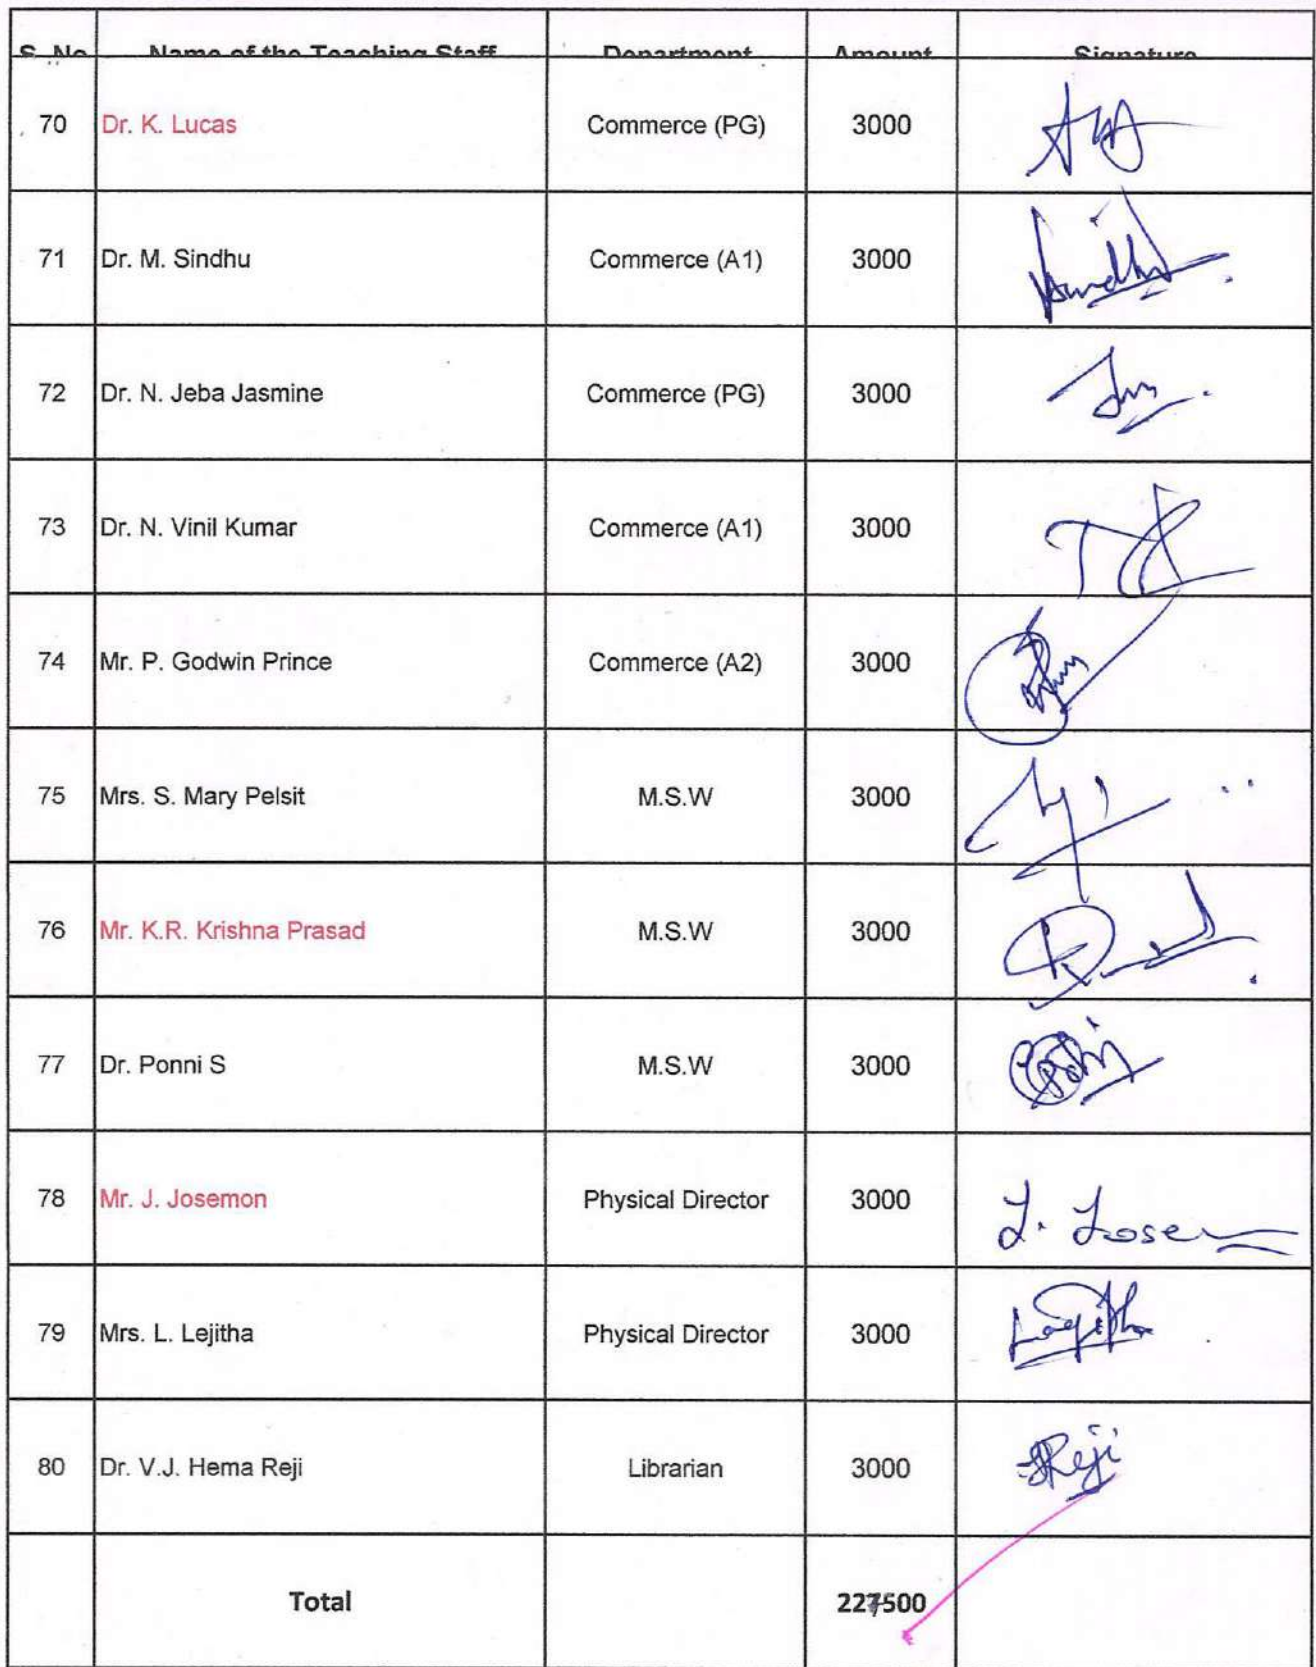 S. No Name of the Teaching Staff Department Amount Signature
70 Dr. K. Lucas Commerce (PG) 3000
71 Dr. M. Sindhu Commerce (A1) 3000 Sindhu
72 Dr. N. Jeba Jasmine Commerce (PG) 3000
73 Dr. N. Vinil Kumar Commerce (A1) 3000
74 Mr. P. Godwin Prince Commerce (A2) 3000
75 Mrs. S. Mary Pelsit M.S.W 3000
76 Mr. K.R. Krishna Prasad M.S.W 3000
77 Dr. Ponni S M.S.W 3000
78 Mr. J. Josemon Physical Director 3000
79 Mrs. L. Lejitha Physical Director 3000 Lejitha
80 Dr. V.J. Hema Reji Librarian 3000 Reji
Total 227500